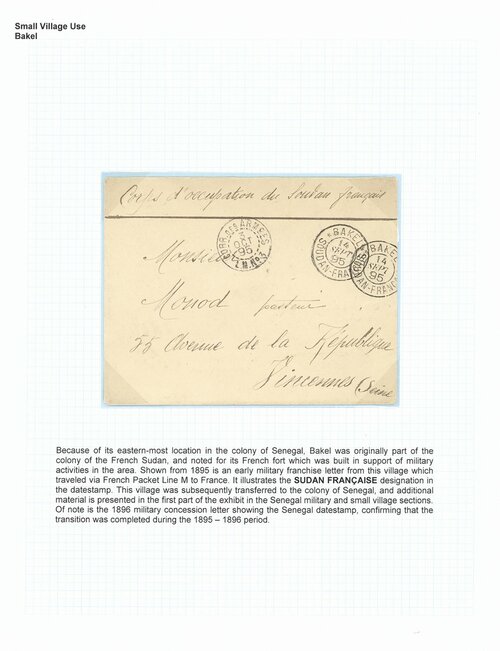 Small Village Use
Bakel
Corps d'occupation du Soudan français
CORR. DES ARMEES
OCT
95
L.M. Nº3
BAKEL
14
SEPT
95
SOUDAN-FRANÇAIS
BAKEL
14
SEPT
95
SOUDAN-FRANÇAIS
Monsieur
Monod pasteur
55 Avenue de la République
Vincennes (Seine
Because of its eastern-most location in the colony of Senegal, Bakel was originally part of the
colony of the French Sudan, and noted for its French fort which was built in support of military
activities in the area. Shown from 1895 is an early military franchise letter from this village which
traveled via French Packet Line M to France. It illustrates the SUDAN FRANÇAISE designation in
the datestamp. This village was subsequently transferred to the colony of Senegal, and additional
material is presented in the first part of the exhibit in the Senegal military and small village sections.
Of note is the 1896 military concession letter showing the Senegal datestamp, confirming that the
transition was completed during the 1895 – 1896 period.